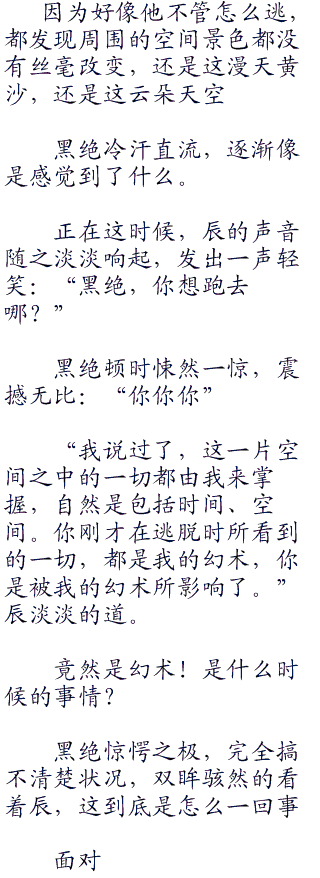 因为好像他不管怎么逃，
都发现周围的空间景色都没
有丝毫改变，还是这漫天黄
沙，还是这云朵天空
黑绝冷汗直流，逐渐像
是感觉到了什么。
正在这时候，辰的声音
随之淡淡响起，发出一声轻
笑：“黑绝，你想跑去
哪？”
黑绝顿时悚然一惊，震
撼无比：“你你你”
“我说过了，这一片空
间之中的一切都由我来掌
握，自然是包括时间、空
间。你刚才在逃脱时所看到
的一切，都是我的幻术，你
是被我的幻术所影响了。”
辰淡淡的道。
竟然是幻术！是什么时
候的事情？
黑绝惊愕之极，完全搞
不清楚状况，双眸骇然的看
着辰，这到底是怎么一回事
面对